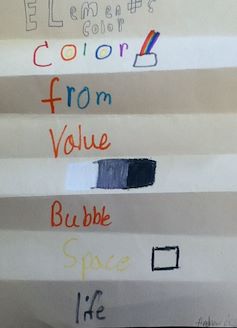 ELements
Color
Color
from
Value
Bubble
Space
life